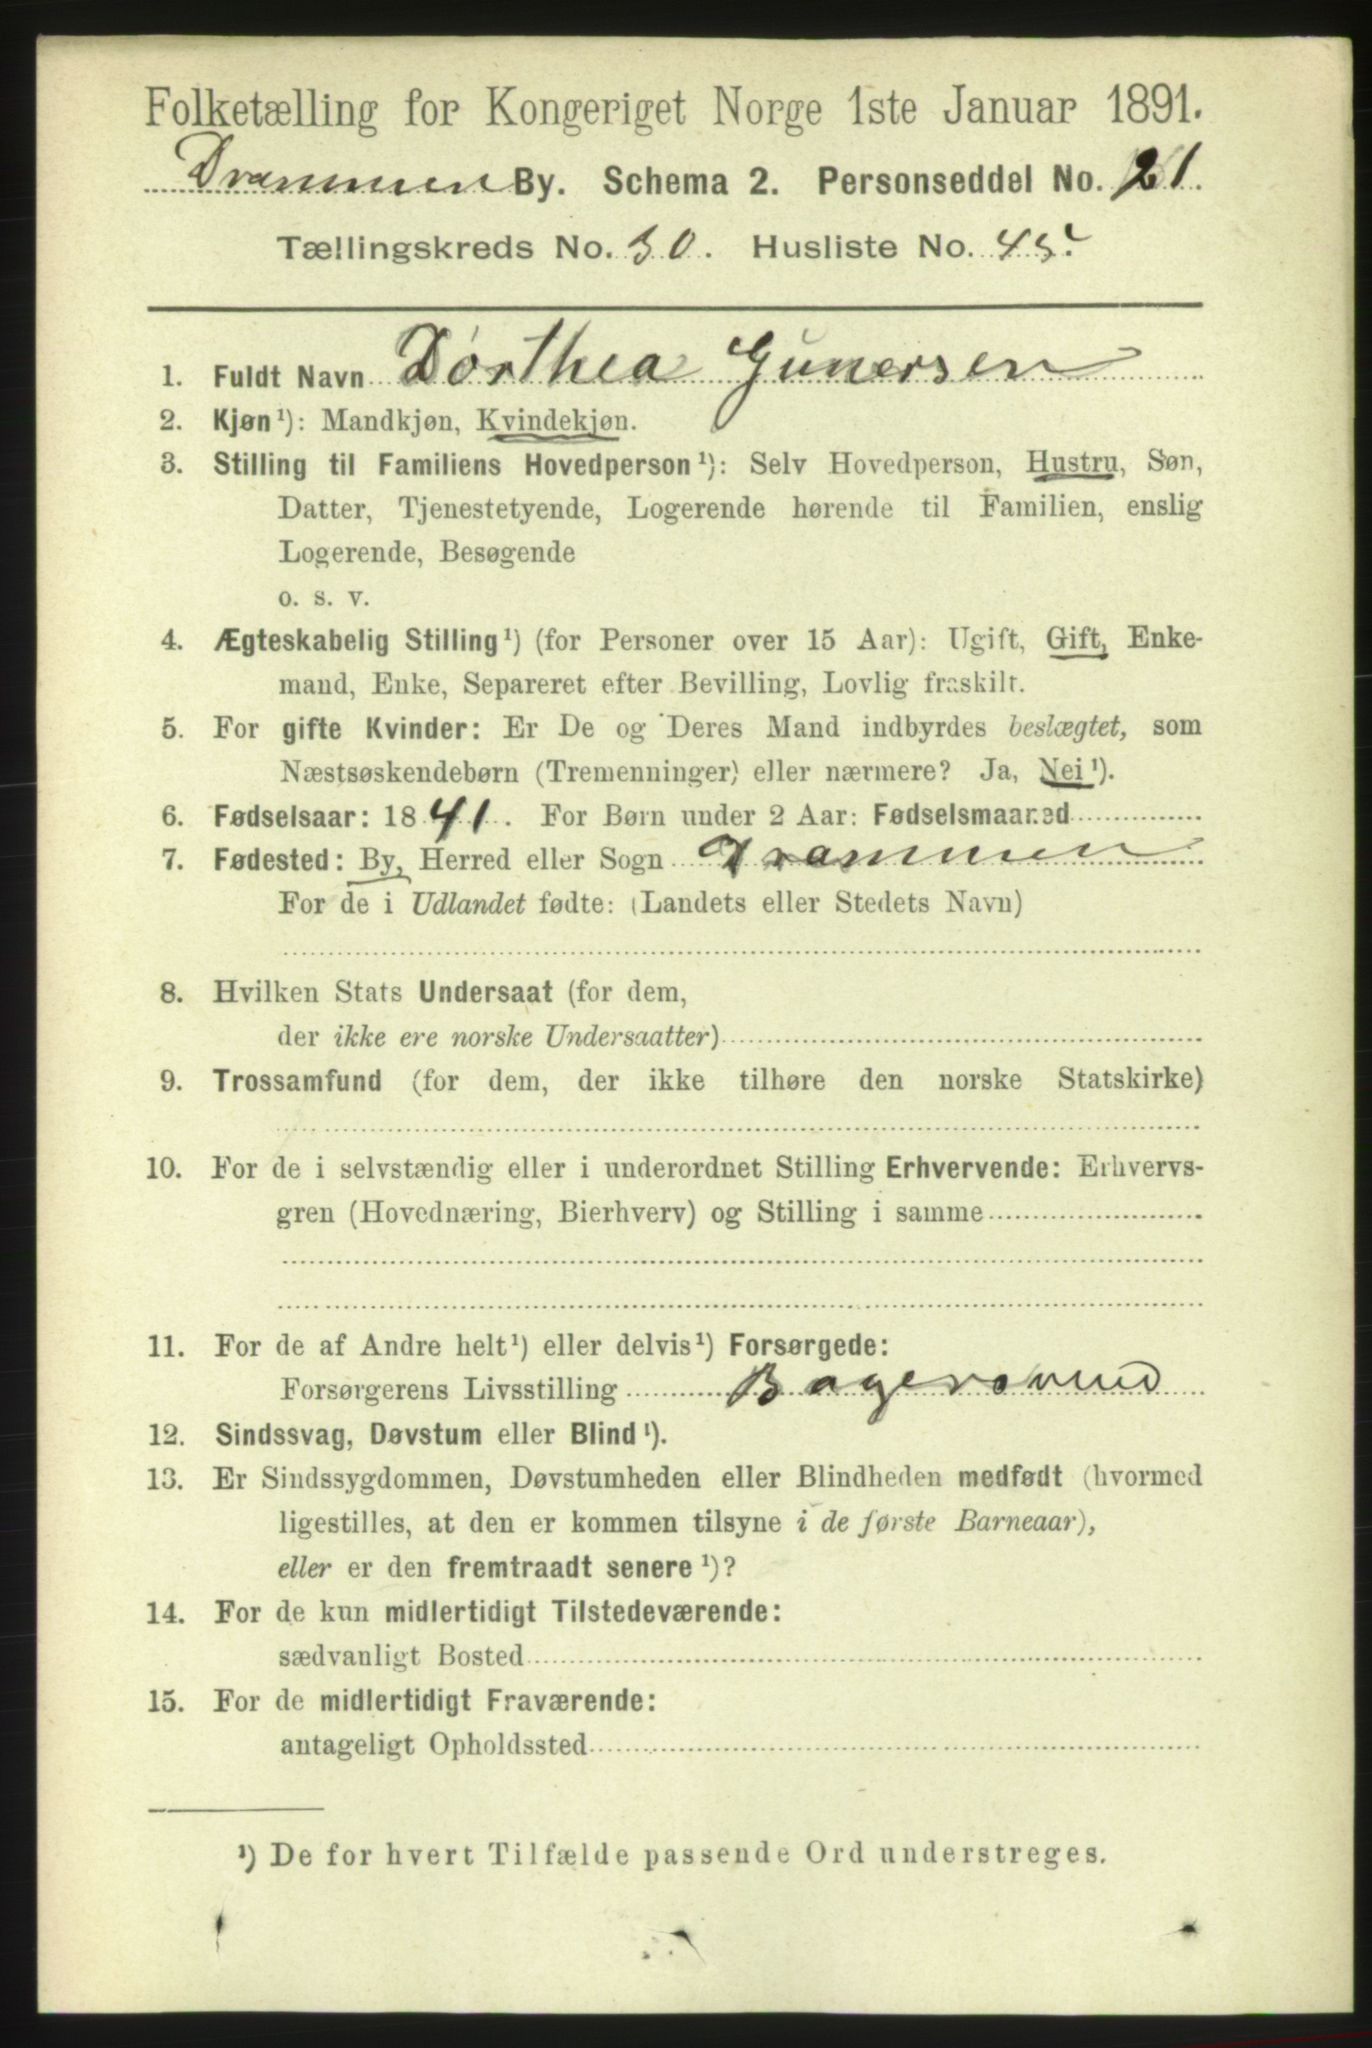 Folketælling for Kongeriget Norge 1ste Januar 1891.
Drammen By. Schema 2. Personseddel No. 21.
Tællingskreds No. 30. Husliste No. 45.
1. Fuldt Navn Dorthea Gunersen
2. Kjøn¹): Mandkjøn, Kvindekjøn.
3. Stilling til Familiens Hovedperson¹): Selv Hovedperson, Hustru, Søn,
Datter, Tjenestetyende, Logerende hørende til Familien, enslig
Logerende, Besøgende
o. s. v.
4. Ægteskabelig Stilling¹) (for Personer over 15 Aar): Ugift, Gift, Enke-
mand, Enke, Separeret efter Bevilling, Lovlig fraskilt.
5. For gifte Kvinder: Er De og Deres Mand indbyrdes beslægtet, som
Næstsøskendebørn (Tremenninger) eller nærmere? Ja, Nei¹).
6. Fødselsaar: 1841. For Børn under 2 Aar: Fødselsmaaned
7. Fødested: By, Herred eller Sogn Drammen
For de i Udlandet fødte: (Landets eller Stedets Navn)
8. Hvilken Stats Undersaat (for dem,
der ikke ere norske Undersaatter)
9. Trossamfund (for dem, der ikke tilhøre den norske Statskirke)
10. For de i selvstændig eller i underordnet Stilling Erhvervende: Erhvervs-
gren (Hovednæring, Bierhverv) og Stilling i samme
11. For de af Andre helt¹) eller delvis¹) Forsørgede:
Forsørgerens Livsstilling
12. Sindssvag, Døvstum eller Blind¹).
13. Er Sindssygdommen, Døvstumheden eller Blindheden medfødt (hvormed
ligestilles, at den er kommen tilsyne i de første Barneaar),
eller er den fremtraadt senere¹)?
14. For de kun midlertidigt Tilstedeværende:
sædvanligt Bosted
15. For de midlertidigt Fraværende:
antageligt Opholdssted
¹) De for hvert Tilfælde passende Ord understreges.